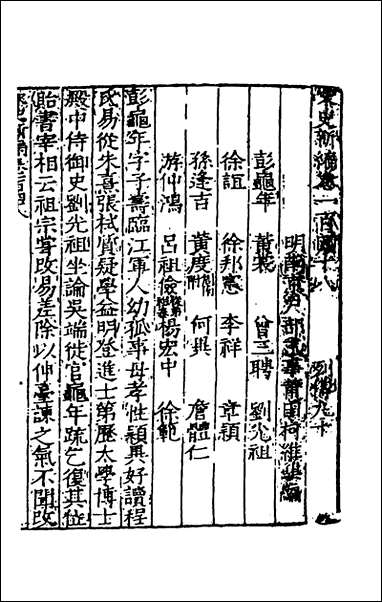 宋史新編卷一百四十八 列傳九十
明南京戶部主事莆田柯維騏編
彭龜年 黃裳 曾三聘 劉光祖
徐誼 徐邦憲 李祥 章穎
孫逢吉 黃度 何異 詹體仁
游仲鴻 呂祖儉 楊宏中 徐範
彭龜年字子壽臨江軍人幼孤事母孝性穎異好讀程
氏易從朱熹張栻質疑學益明登進士第歷太學博士
殿中侍御史劉光祖坐論吳端徙官龜年疏乞復其位
貽書宰相云祖宗寧改易差除以伸臺諫之氣不聞改